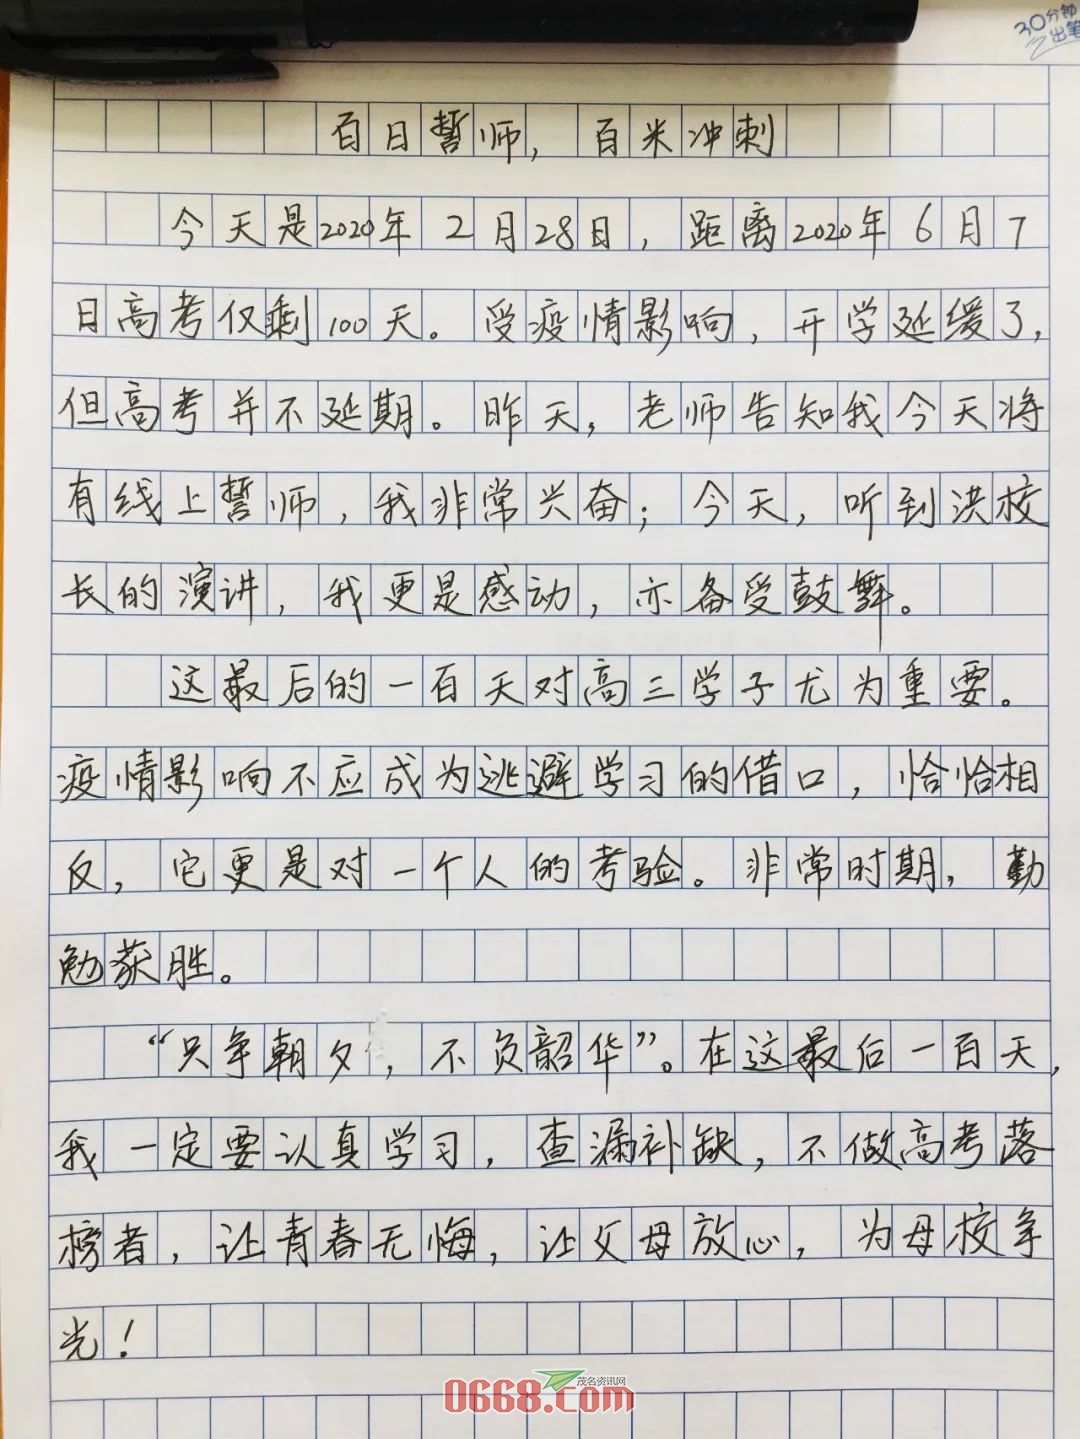 30分钟
出笔
百日誓师，百米冲刺
今天是2020年2月28日，距离2020年6月7
日高考仅剩100天。受疫情影响，开学延缓了，
但高考并不延期。昨天，老师告知我今天将
有线上誓师，我非常兴奋；今天，听到洪校
长的演讲，我更是感动，亦备受鼓舞。
这最后的一百天对高三学子尤为重要。
疫情影响不应成为逃避学习的借口，恰恰相
反，它更是对一个人的考验。非常时期，勤
勉获胜。
“只争朝夕，不负韶华”。在这最后一百天，
我一定要认真学习，查漏补缺，不做高考落
榜者，让青春无悔，让父母放心，为母校争
光！
茂名资讯网
0668.com